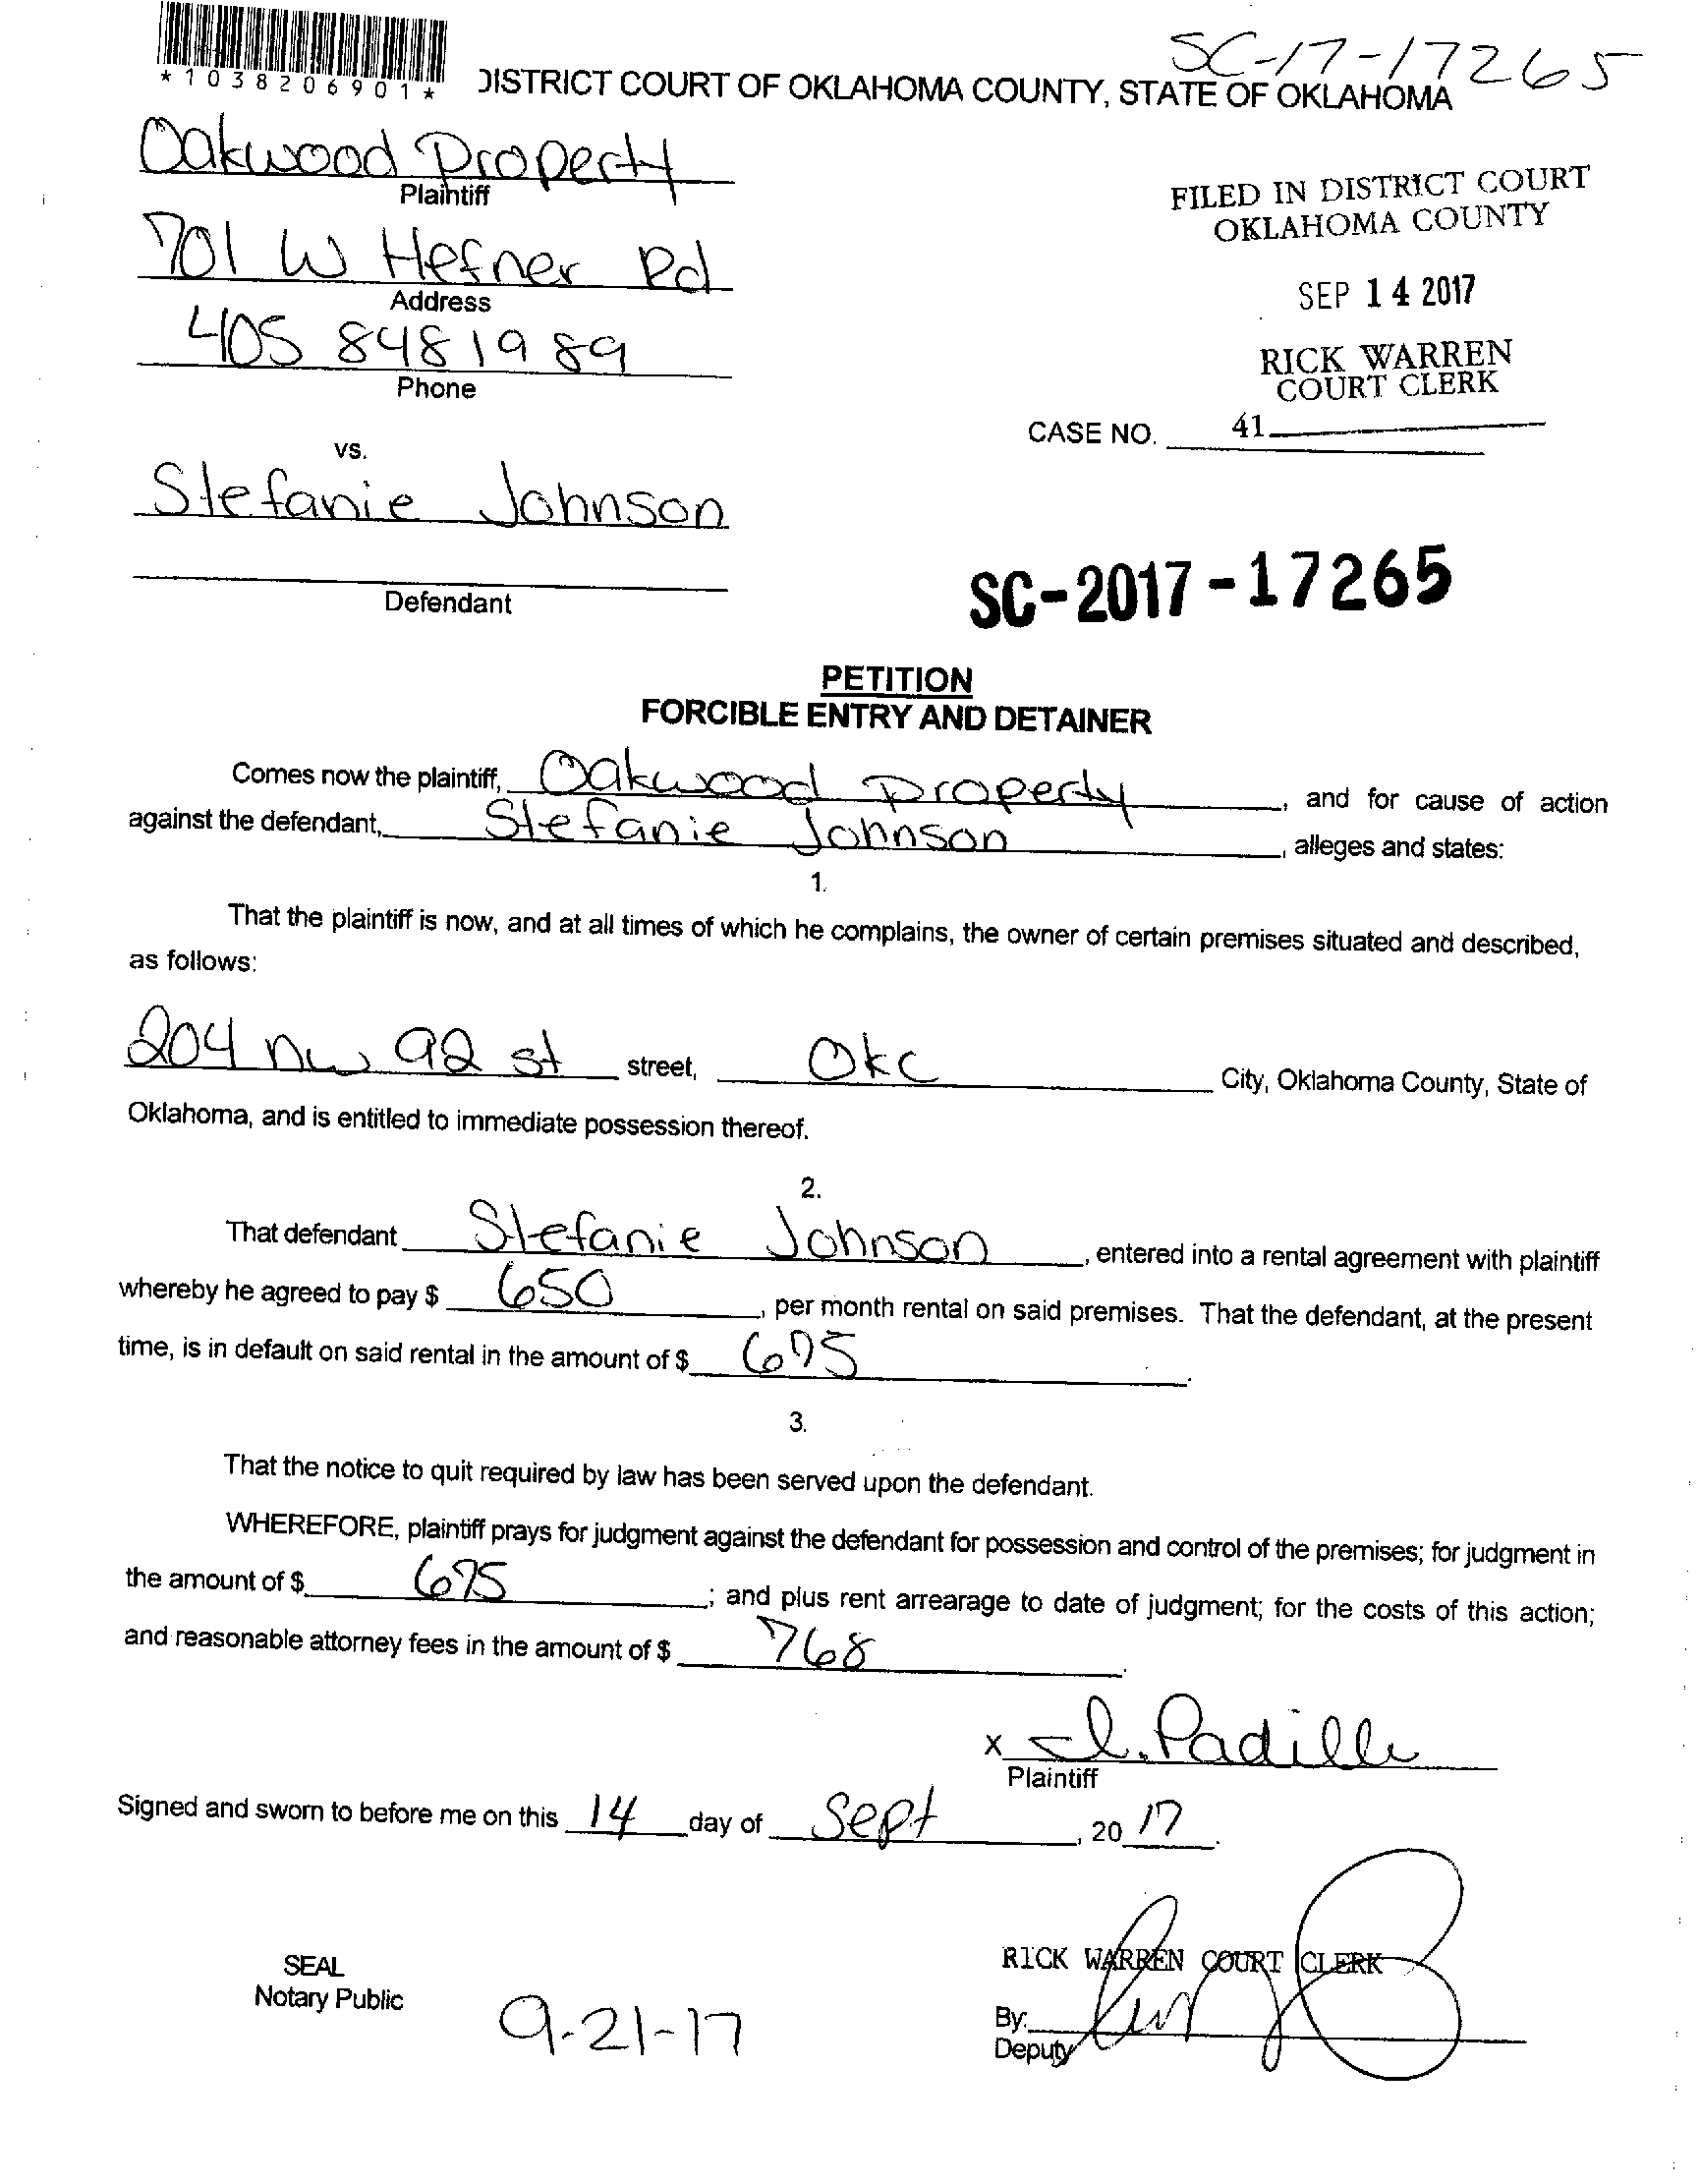 SC-17-17265
*1038206901*
DISTRICT COURT OF OKLAHOMA COUNTY, STATE OF OKLAHOMA
Oakwood Property
Plaintiff
701 W Hefner Rd
Address
405 848 1989
Phone
FILED IN DISTRICT COURT
OKLAHOMA COUNTY
SEP 14 2017
RICK WARREN
COURT CLERK
CASE NO. 41
vs.
Stefanie Johnson
Defendant
SC-2017-17265
PETITION
FORCIBLE ENTRY AND DETAINER
Comes now the plaintiff, Oakwood Property, and for cause of action
against the defendant, Stefanie Johnson, alleges and states:
1.
That the plaintiff is now, and at all times of which he complains, the owner of certain premises situated and described,
as follows:
204 nw 92 st street, Okc City, Oklahoma County, State of
Oklahoma, and is entitled to immediate possession thereof.
2.
That defendant Stefanie Johnson, entered into a rental agreement with plaintiff
whereby he agreed to pay $ 650, per month rental on said premises. That the defendant, at the present
time, is in default on said rental in the amount of $ 675.
3.
That the notice to quit required by law has been served upon the defendant.
WHEREFORE, plaintiff prays for judgment against the defendant for possession and control of the premises; for judgment in
the amount of $ 675; and plus rent arrearage to date of judgment; for the costs of this action;
and reasonable attorney fees in the amount of $ 768.
x I. Padilla
Plaintiff
Signed and sworn to before me on this 14 day of Sept, 20 17.
SEAL
Notary Public
9-21-17
RICK WARREN COURT CLERK
By:
Deputy